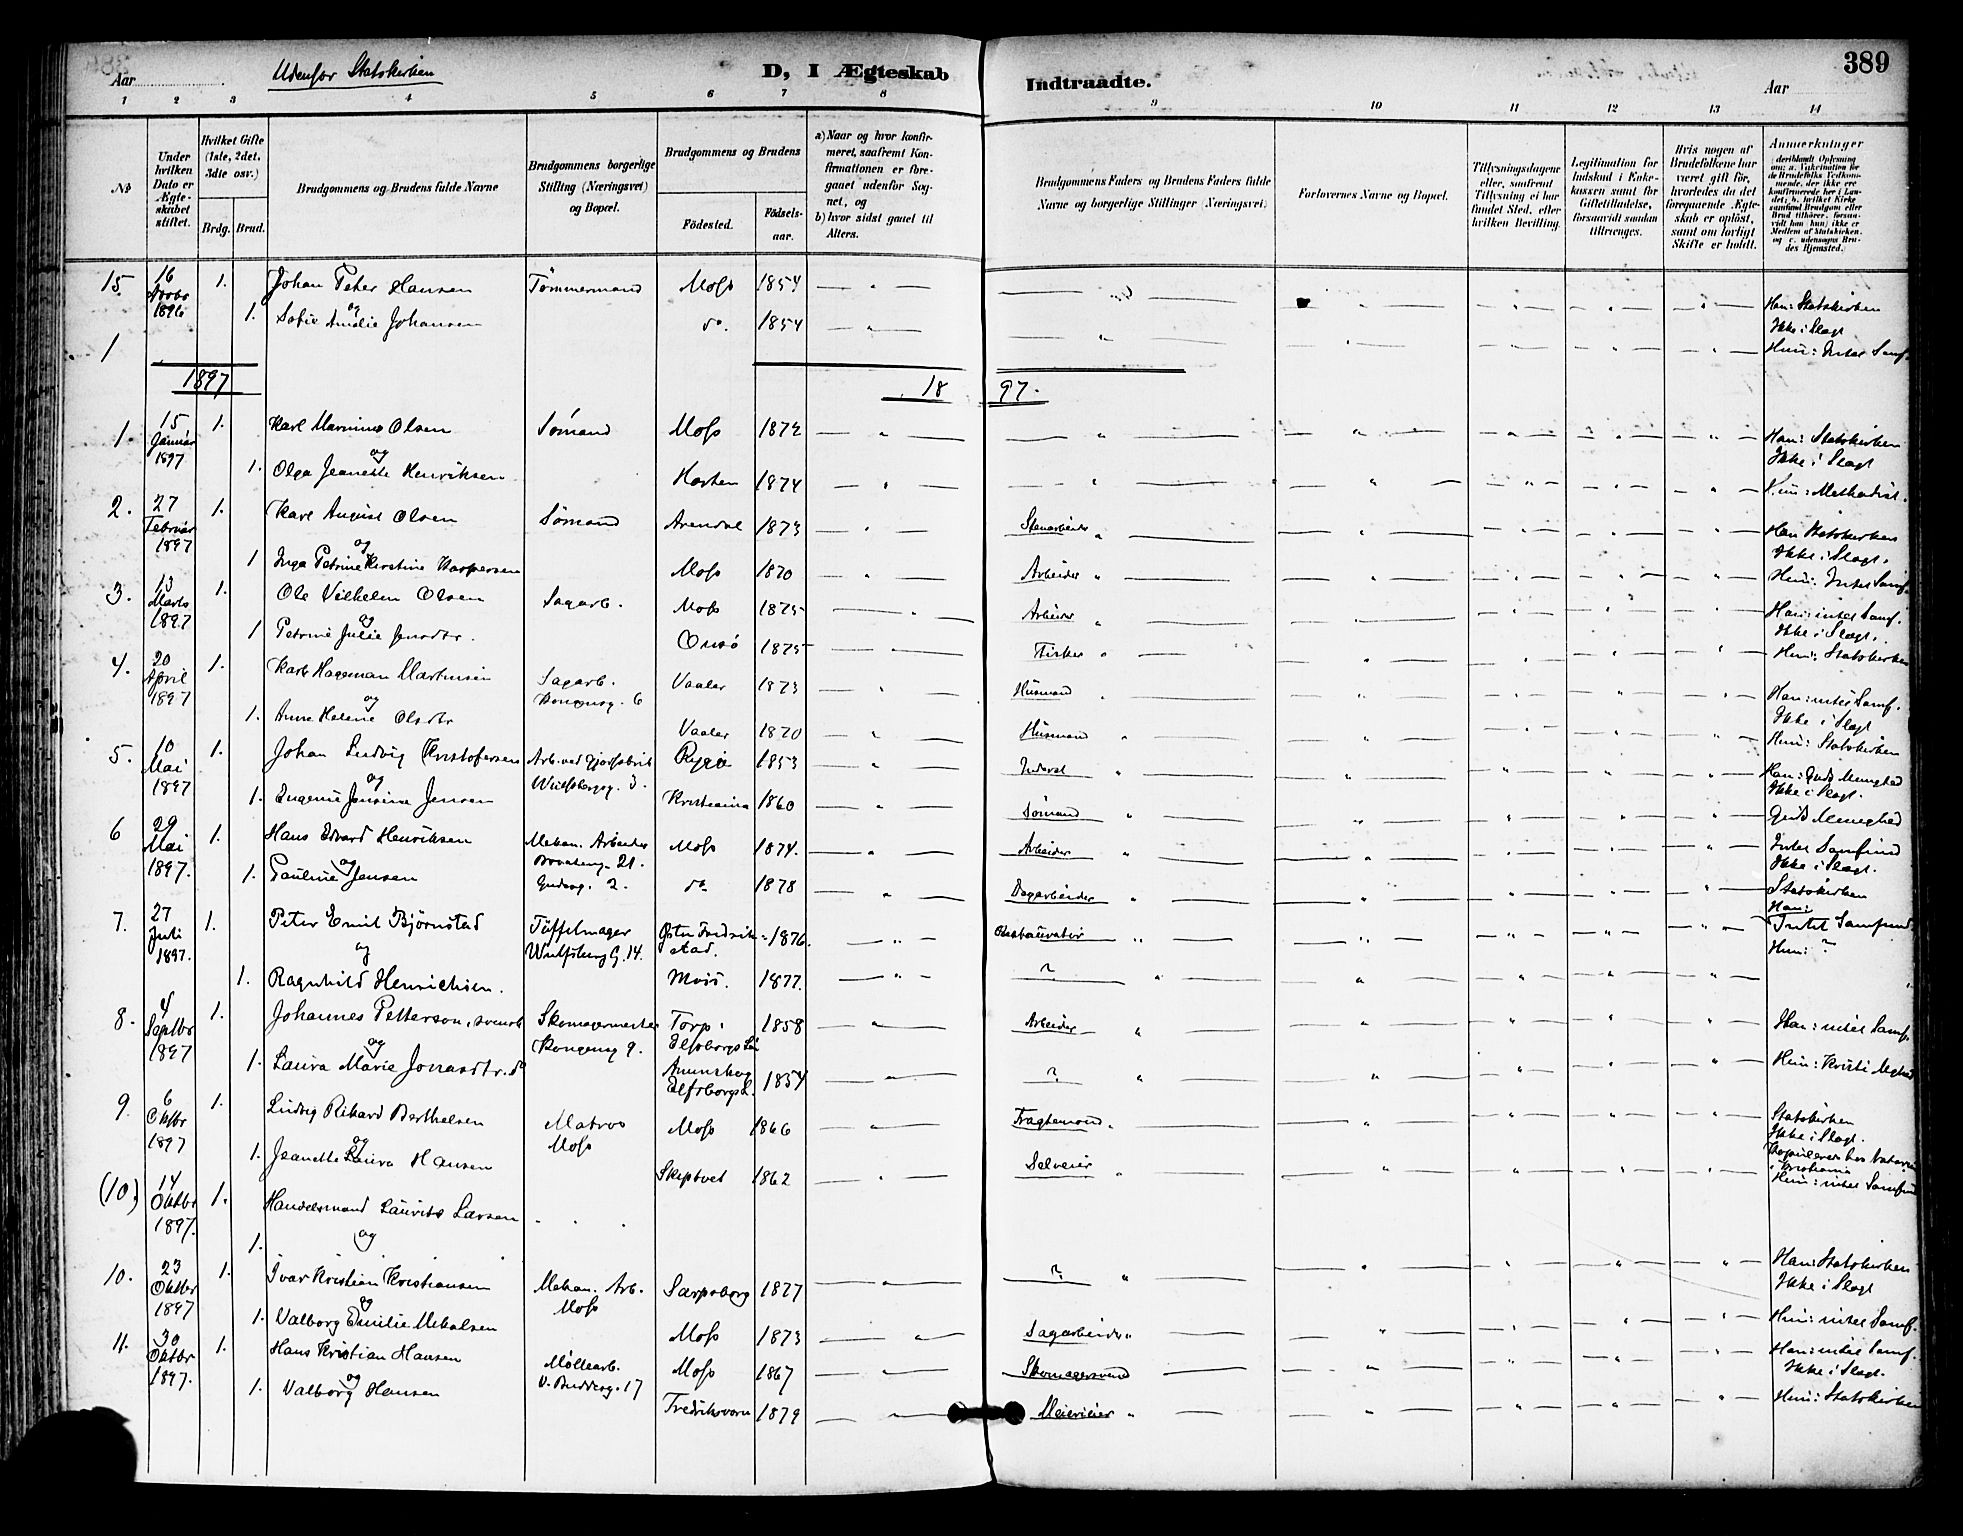 Aar
Udenfor Statskirken
D, I Ægteskab
Indtraadte.
Aar
389
1 2 3 4 5 6 7 8 9 10 11 12 13 14
No
Under hvilken Dato er Ægteskabet stiftet.
Hvilket Gifte (1ste, 2det, 3die osv.)
Brdg. Brud.
Brudgommens og Brudens fulde Navne
Brudgommens borgerlige Stilling (Næringsvei) og Bopæl.
Brudgommens og Brudens
Fødested.
Fødselsaar.
a) Naar og hvor konfirmeret, saafremt Konfirmationen er foregaaet udenfor Sognet, og
b) hvor sidst gaaet til Alters.
Brudgommens Faders og Brudens Faders fulde Navne og borgerlige Stillinger (Næringsvei)
Forlovernes Navne og Bopæl.
Tillysningsdagene eller, saafremt Tillysning ei har fundet Sted, efter hvilken Bevilling.
Legitimation for Indskud i Enkekassen samt for Giftetilladelse, forsaavidt saadan tiltrænges.
Hvis nogen af Brudefolkene har været gift før, hvorledes da det foregaaende Ægteskab er opløst, samt om lovligt Skifte er holdt.
Anmerkninger
15. 16 Novbr 1896 1. Johan Peter Hansen Tømmermand Moss 1854 Han: Statskirken
og Ikke i Slægt
1. Sofie Amalie Johansen do. 1854 Hun: Intet Samf.
1
1897
1897.
1. 15 Januar 1897 1. Karl Marinius Olsen Sømand Moss 1872 Han: Statskirken
og Ikke i Slægt
1. Olga Jeanette Henriksen Horten 1874 Hun: Methodist.
2. 27 Februar 1897 1. Karl August Olsen Sømand Arendal 1873 Stenarbeider Han Statskirken
og Ikke i Slægt.
1 Inga Petrine Kirstine Kaspersen Moss 1870 Arbeider Hun: Intet Samf.
3. 13 Marts 1897 1. Ole Vilhelm Olsen Sagarb. Moss 1875 Arbeider Han: intet Samf.
og Ikke i Slægt.
1 Petrine Julie Jensdtr. Onsø 1875 Fisker Hun: Statskirken
4. 20 April 1897 1. Karl Hageman Martinsen Sagarb. Kongensg. 6 Vaaler 1873 Husmand Han: intet Samf.
og Ikke i Slægt
1. Anne Helene Olsdtr Vaaler 1870 Husmand Hun: Statskirken
5. 10 Mai 1897 1. Johan Ludvig Kristofersen Wulfsbergsg. 3. Rygge 1853 Inderst Han: Guds Menighed
og Ikke i Slægt.
1. Eugenie Jensine Jensen Kristiania 1860 Sømand Guds Menighed
6 29 Mai 1897. 1. Hans Edvard Henriksen Mekan. Arbeider Moss 1874. Arbeider Intet Samfund
og Ikke i Slægt.
1. Pauline Jensen 2. do 1878 Dagarbeider Statskirken
7. 27 Juli 1897. 1. Peter Emil Bjørnstad Tøffelmager Wulfsberg G. 14. Østre Fredrikstad. 1876. Restauratør Han: Intet Samfund
og Hun: ?
1. Ragnhild Henrichsen. Moss. 1877. ?
8. 4 Septbr 1897 1. Johannes Petterson, svensk Skomagermester Kongensg 9. Torp, Elfsborgs Län 1858 Arbeider Han: intet Samf.
og
1. Laura Marie Jonasdtr. do Elfsborgs L. 1854 ? Hun: Kristi Mghed
9. 6 Oktbr 1897 1. Ludvig Rikard Berthelsen Matros Moss Moss 1866 Fragtemand Statskirken
og Ikke i Slægt.
1. Jeanette Laura Hansen Skiptvet 1862 Selveier Kristiania
Hun: intet Samfund
(10.) 14 Oktbr 1897. 1. Handelsmand Laurits Larsen
og
1.
10. 23 Oktbr 1897 1. Ivar Kristian Kristiansen Mekan. Arb. Moss Sarpsborg 1877 ? Han: Statskirken
og Ikke i Slægt
1. Valborg Emilie Mikalsen Moss 1873 Sagarbeider Hun: intet Samf.
11. 30 Oktbr 1897. 1. Hans Kristian Hansen Møllearb. 17 Moss 1867 Skomagersvend Han: intet Samf.
og Ikke i Slægt.
1. Valborg Hansen Fredriksvern 1879 Meierieier Hun: Statskirken